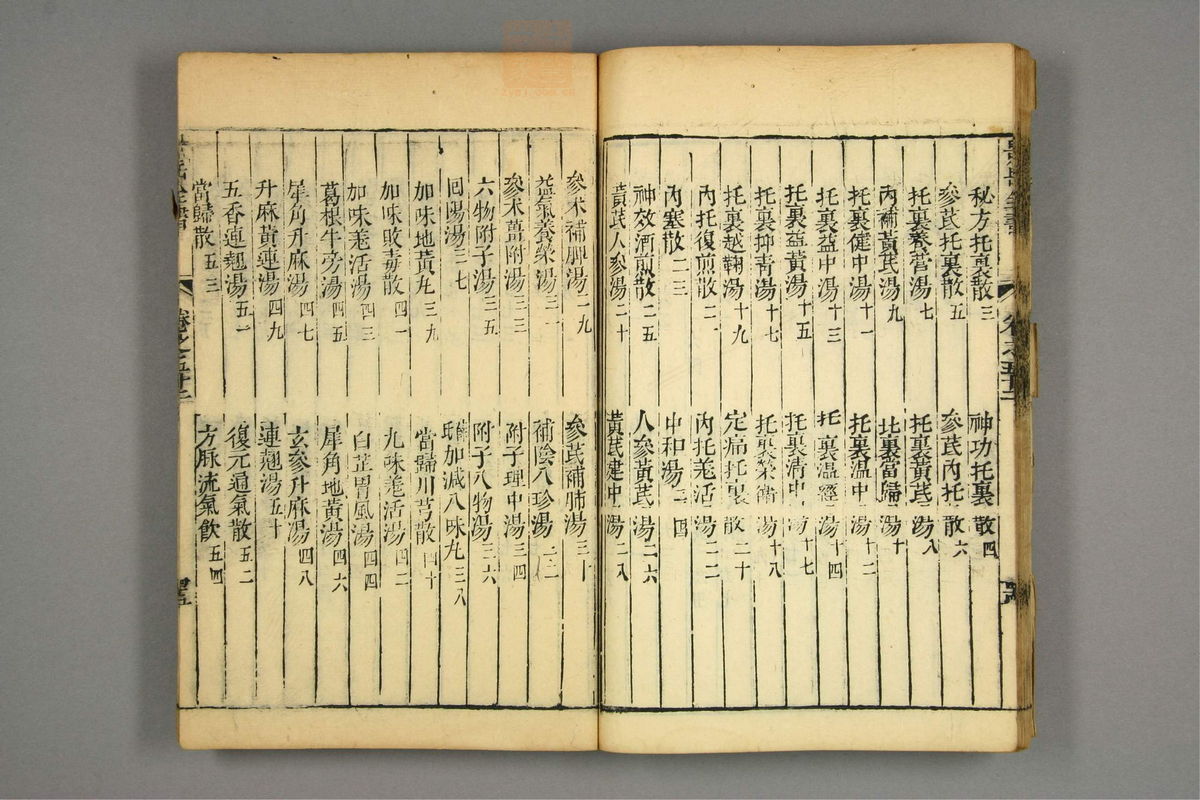 景岳全書 卷之五十二
秘方托裏散三 神功托裏散四
參芪托裏散五 參芪內托散六
托裏養營湯七 托裏黃芪湯八
內補黃芪湯九 托裏當歸湯十
托裏健中湯十一 托裏溫中湯十二
托裏益中湯十三 托裏溫經湯十四
托裏益黃湯十五 托裏清中湯十七
托裏抑青湯十七 托裏榮衛湯十八
托裏越鞠湯十九 定痛托裏散二十
內托復煎散二一 內托羌活湯二二
內塞散二三 中和湯二四
神效酒煎散二五 人參黃芪湯二六
黃芪人參湯二十 黃芪建中湯二八
參朮補脾湯二九 參芪補肺湯三十
益氣養榮湯三一 補陰八珍湯三二
參朮薑附湯三三 附子理中湯三四
六物附子湯三五 附子八物湯三六
回陽湯三七 加減八味丸三八
加味地黃丸三九 當歸川芎散四十
加味敗毒散四一 九味羌活湯四二
加味羌活湯四三 白芷胃風湯四四
葛根牛旁湯四五 犀角地黃湯四六
犀角升麻湯四七 玄參升麻湯四八
升麻黃連湯四九 連翹湯五十
五香連翹湯五一 復元通氣散五二
當歸散五三 方脉流氣飲五四